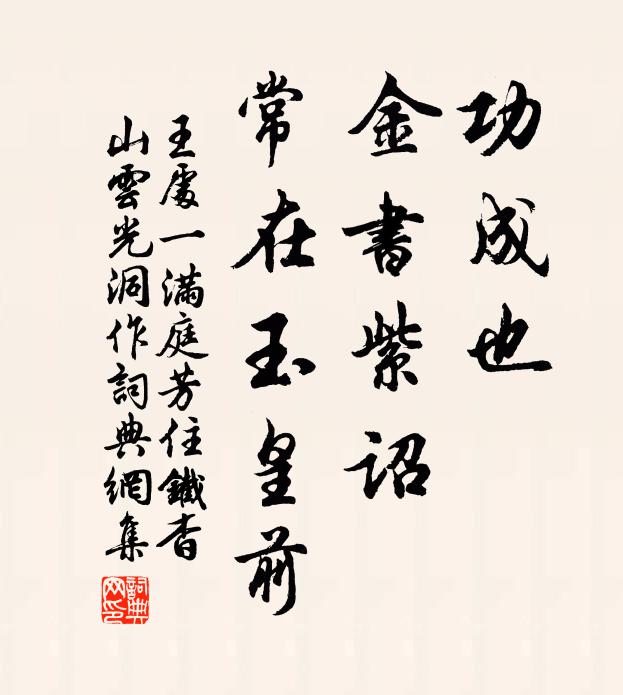 功成也
金書紫詔
常在玉皇前
王處一滿庭芳住鐵查
山雲光洞作詞典網集
詞典网印